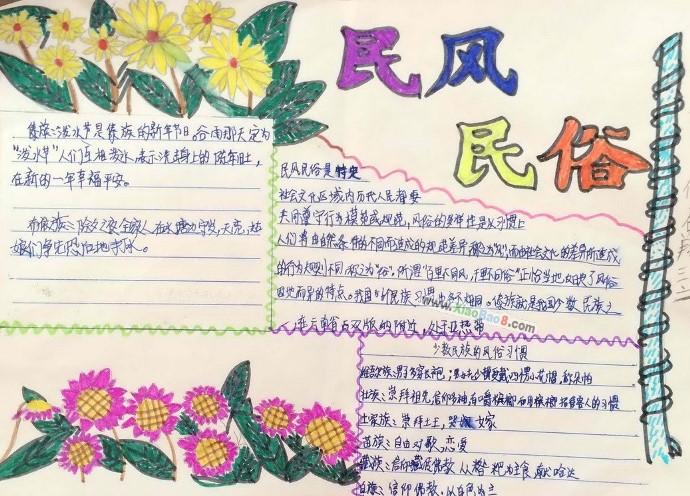 民风
民俗
傣族:泼水节是傣族的新年节日。谷雨那天定为
"泼水节"人们互相泼水,表示洗去身上的
在新的一年幸福平安。
布依族:除夕之夜全家人在火塘边守岁,天亮,姑
娘们争先恐后地
民风民俗是特定
社会文化区域内历代人民
共同遵守行为模式或规范,风俗的多样性是以习惯上
人们将由自然条件的不同而造成的规范差异称之为"风",而由社会文化的差异所造成
的行为规则不同称之为"俗"。所谓"百里不同风,千里不同俗"正恰当地反映了风俗
因地而异的特点。我国56个民族习惯也各不相同。傣族就是我国少数民族之
一,在云南省西双版纳附近,处于亚热带
少数民族的风俗习惯
壮族:崇拜祖先,信仰多神,
土家族:崇拜土王,哭嫁
苗族:自由对歌,恋爱
藏族:信仰藏传佛教 从 糌粑为主食 献哈达
白族:信仰佛教,以白色为主
www.XiaoBao8.com